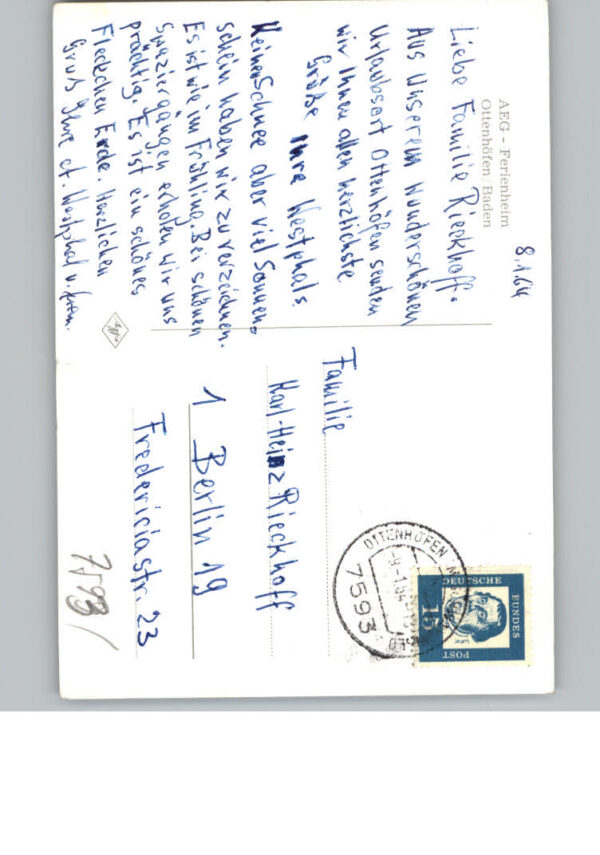 AEG - Ferienheim
Ottenhöfen, Baden
8.1.64
Liebe Familie Rieckhoff.
Aus Unserem wunderschönen
Urlaubsort Ottenhöfen senden
wir Ihnen allen herzlichste
Grüße Ihre Westphals
Keinen Schnee aber viel Sonnen-
schein haben wir zu verzeichnen.
Es ist wie im Frühling. Bei schönen
Spaziergängen erholen wir uns
prächtig. Es ist ein schönes
Fleckchen Erde. Herzlichen
Gruß Ihre A. Westphal u.
Familie
Karl-Heinz Rieckhoff
1 Berlin 19
Fredericiastr 23
7593
OTTENHÖFEN
7593
DEUTSCHE
BUNDES
POST
15
Luther
Agfa